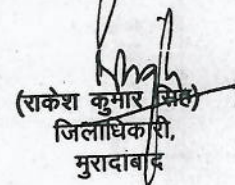 (राकेश कुमार सिंह)
जिलाधिकारी,
मुरादाबाद